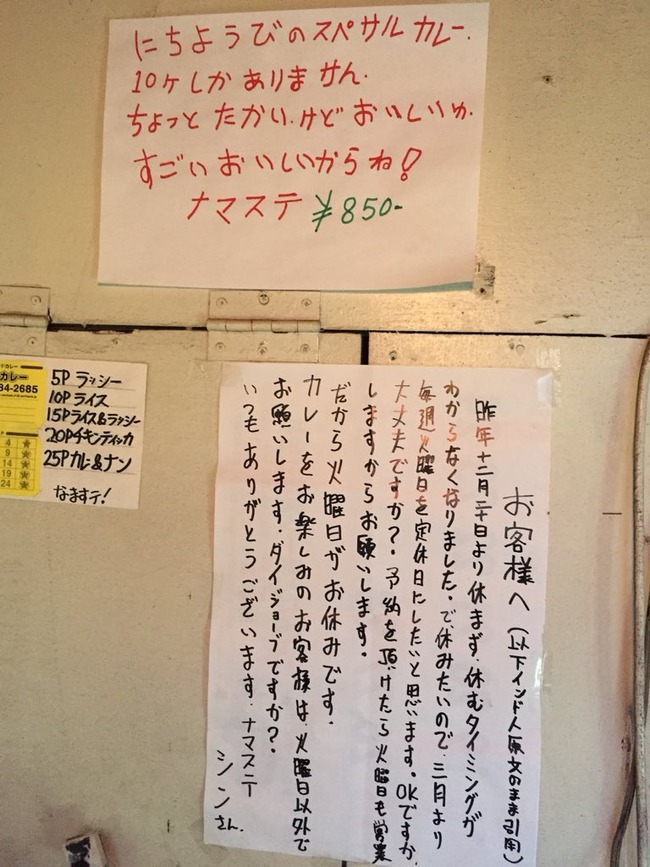 にちようびのスペサルカレー.
10ケしかありません.
ちょっとたかい.けどおいしいゆ.
すごいおいしいからね!
ナマステ ¥850-
カレー
34-2685
4
9
14
19
24
5P ラッシー
10P ライス
15Pライス&ラッシー
20Pチキンティッカ
25Pカレー&ナン
なますテ!
お客様へ(以下インド人原文のまま引用)
昨年十二月二十日より休まず、休むタイミングが
わからなくなりました。で、休みたいので、三月より
毎週火曜日を定休日にしたいと思います。OKですか、
大丈夫ですか?。予約を頂けたら火曜日も営業
しますからお願いします。
だから火曜日がお休みです.
カレーをお楽しみのお客様は、火曜日以外で
お願いします.ダイジョーブですか?.
いつもありがとうございます.ナマステー
シンさん.